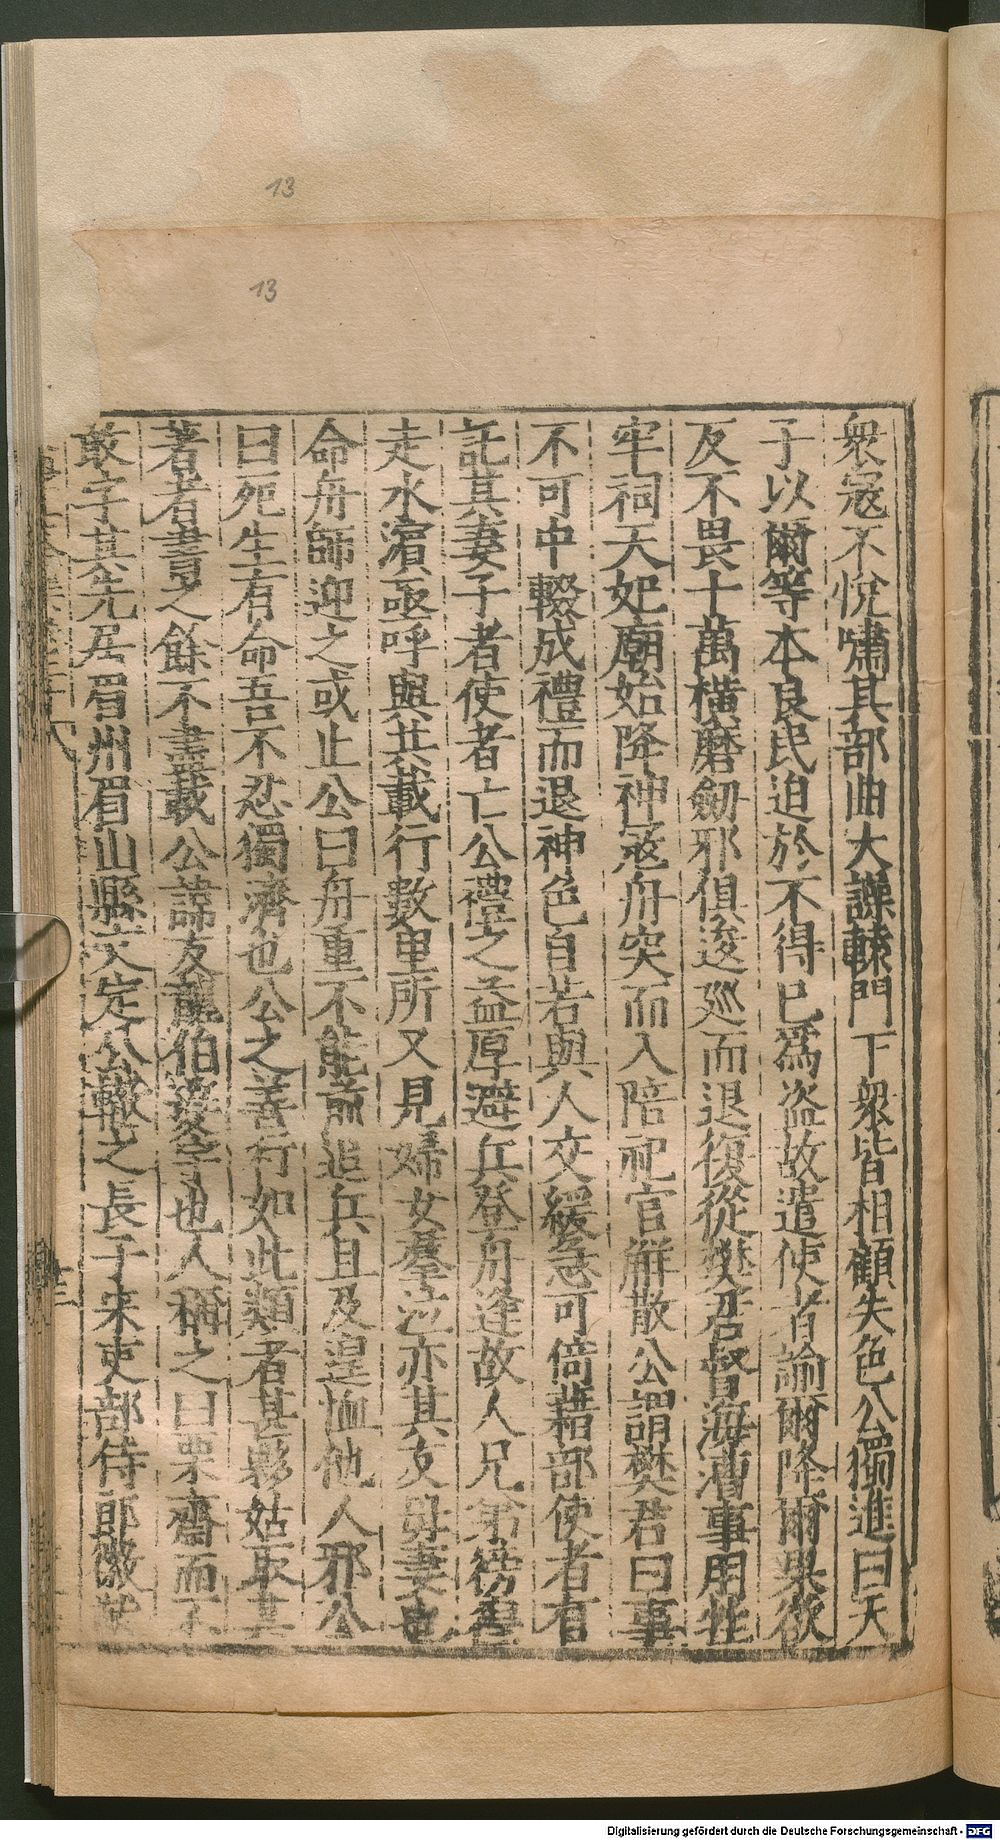 13
13
衆寇不悅嘯其部曲大譟轅門下衆皆相顧失色公獨進曰天
子以爾等本良民迫於不得已爲盜故遣使者諭爾降爾果欲
反不畏十萬橫磨劒邪俱逡巡而退復從樊君督海漕事用牲
牢祠天妃廟始降神寇舟突而入陪祀官觧散公謂樊君曰事
不可中輟成禮而退神色自若與人交緩急可倚藉部使者有
託其妻子者使者亡公禮之益厚避兵登舟逢故人兄弟徬徨
走水濵亟呼與共載行數里所又見婦女羣泣亦其友
命舟師迎之或止公曰舟重不能前追兵且及遑恤他人邪公
曰死生有命吾不忍獨濟也公之善行如此類者甚夥姑取其
著者書之餘不盡載公諱友龍伯字也人稱之曰栗齋而不
敢字其先居眉州眉山縣文定公轍之長子来吏部侍郎徽
Digitalisierung gefördert durch die Deutsche Forschungsgemeinschaft - DFG